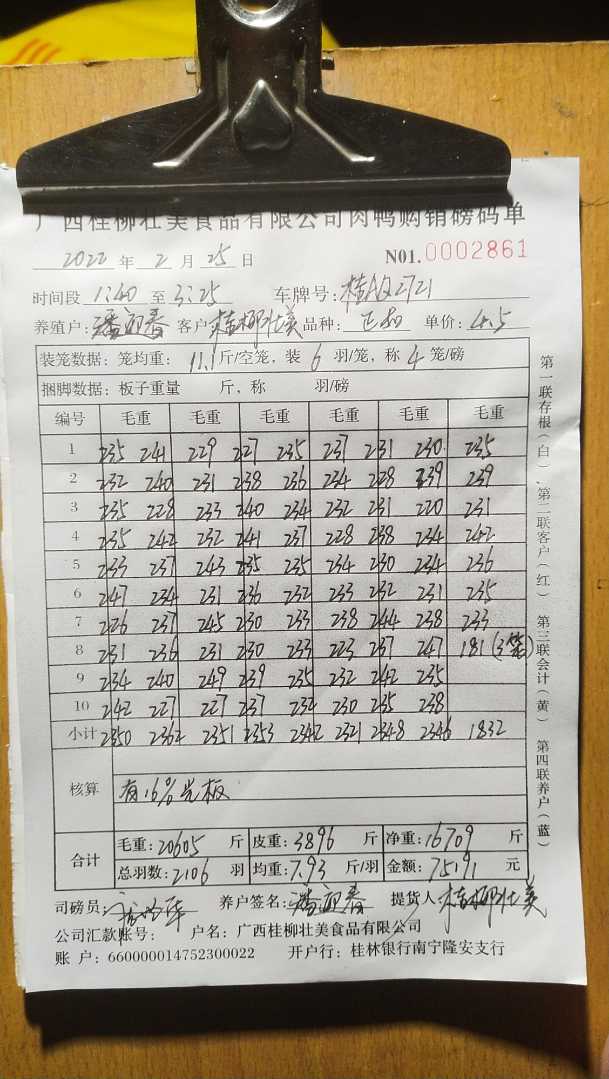 广西桂柳壮美食品有限公司肉鸭购销磅码单
2022 年 2 月 25 日 N01.0002861
时间段 1:40 至 3:25 车牌号: 2721
养殖户: 潘 春 客户 桂柳壮美 品种: 正和 单价: 4.5
装笼数据: 笼均重: 11.1 斤/空笼, 装 6 羽/笼, 称 4 笼/磅
捆脚数据: 板子重量 斤, 称 羽/磅
编号 毛重 毛重 毛重 毛重 毛重 毛重
1 235 241 229 227 235 237 231 230 235
2 232 240 231 238 236 234 228 239 239
3 235 228 233 240 234 232 231 220 231
4 235 242 232 241 237 228 238 234 242
5 233 237 243 235 235 234 230 234 236
6 247 234 231 236 232 233 232 231 235
7 226 237 245 230 233 238 244 238 233
8 231 236 231 230 233 223 237 247 181 (3笼)
9 234 240 249 239 235 232 242 235
10 242 227 227 237 232 230 235 238
小计 2350 2362 2351 2353 2342 2321 2348 2346 1832
核算 有16%光板
合计 毛重: 20605 斤 皮重: 3896 斤 净重: 16709 斤
总羽数: 2106 羽 均重: 7.93 斤/羽 金额: 75191 元
司磅员: 养户签名: 潘 春 提货人 桂柳壮美
公司汇款账号: 户名: 广西桂柳壮美食品有限公司
账 户: 660000014752300022 开户行: 桂林银行南宁隆安支行
第一联存根(白)、第二联客户(红) 第三联会计(黄) 第四联养户(蓝)